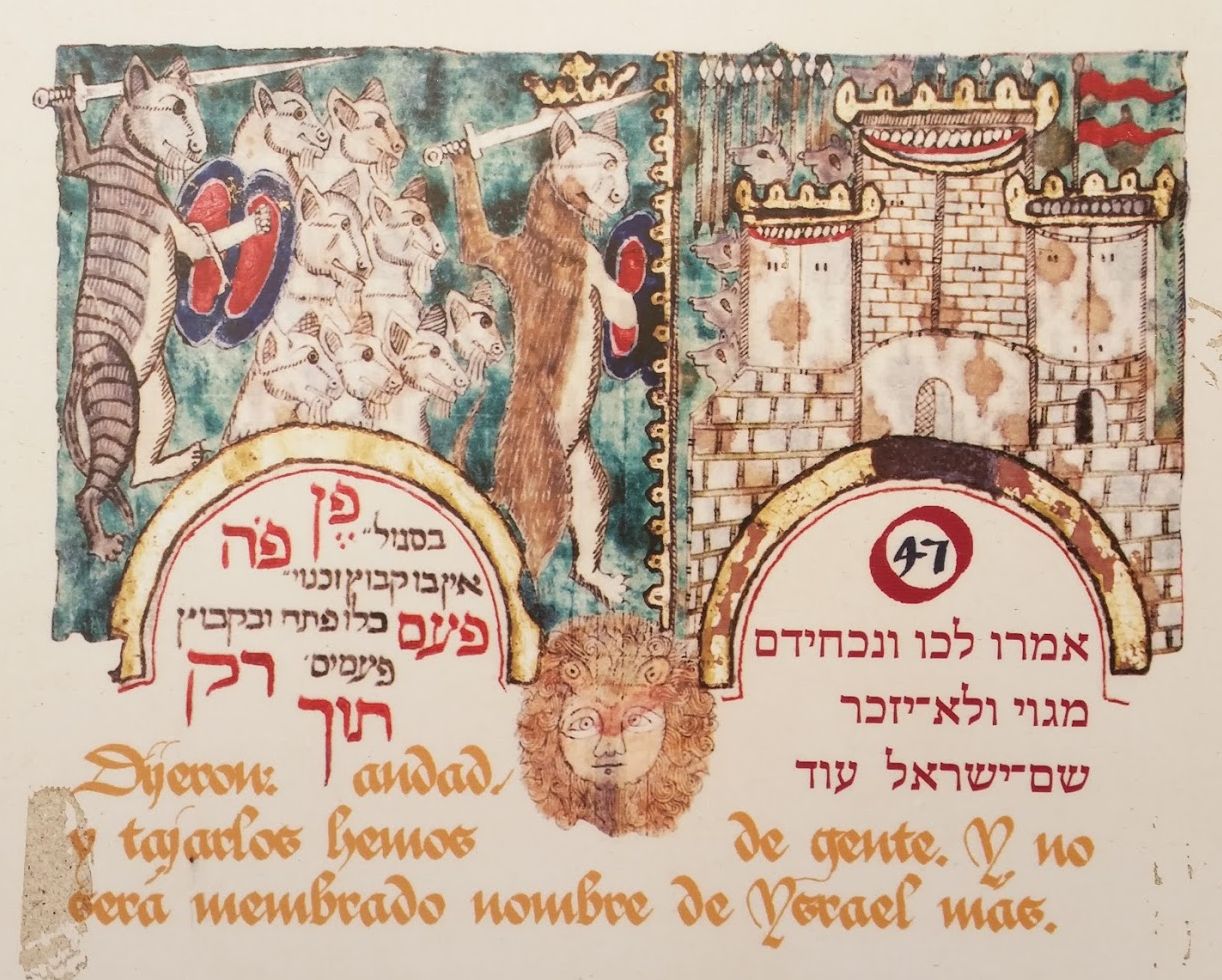 בסגול״ פן פה
אין בו קבוץ וכנוי״
פעם כלו פתח ובקבוץ
פעמים׳ רק
תוך
47
אמרו לכו ונכחידם
מגוי ולא־יזכר
שם־ישראל עוד
Dijeron: andad,
y tajarlos hemos de gente. Y no
será membrado nombre de Ysrael más.